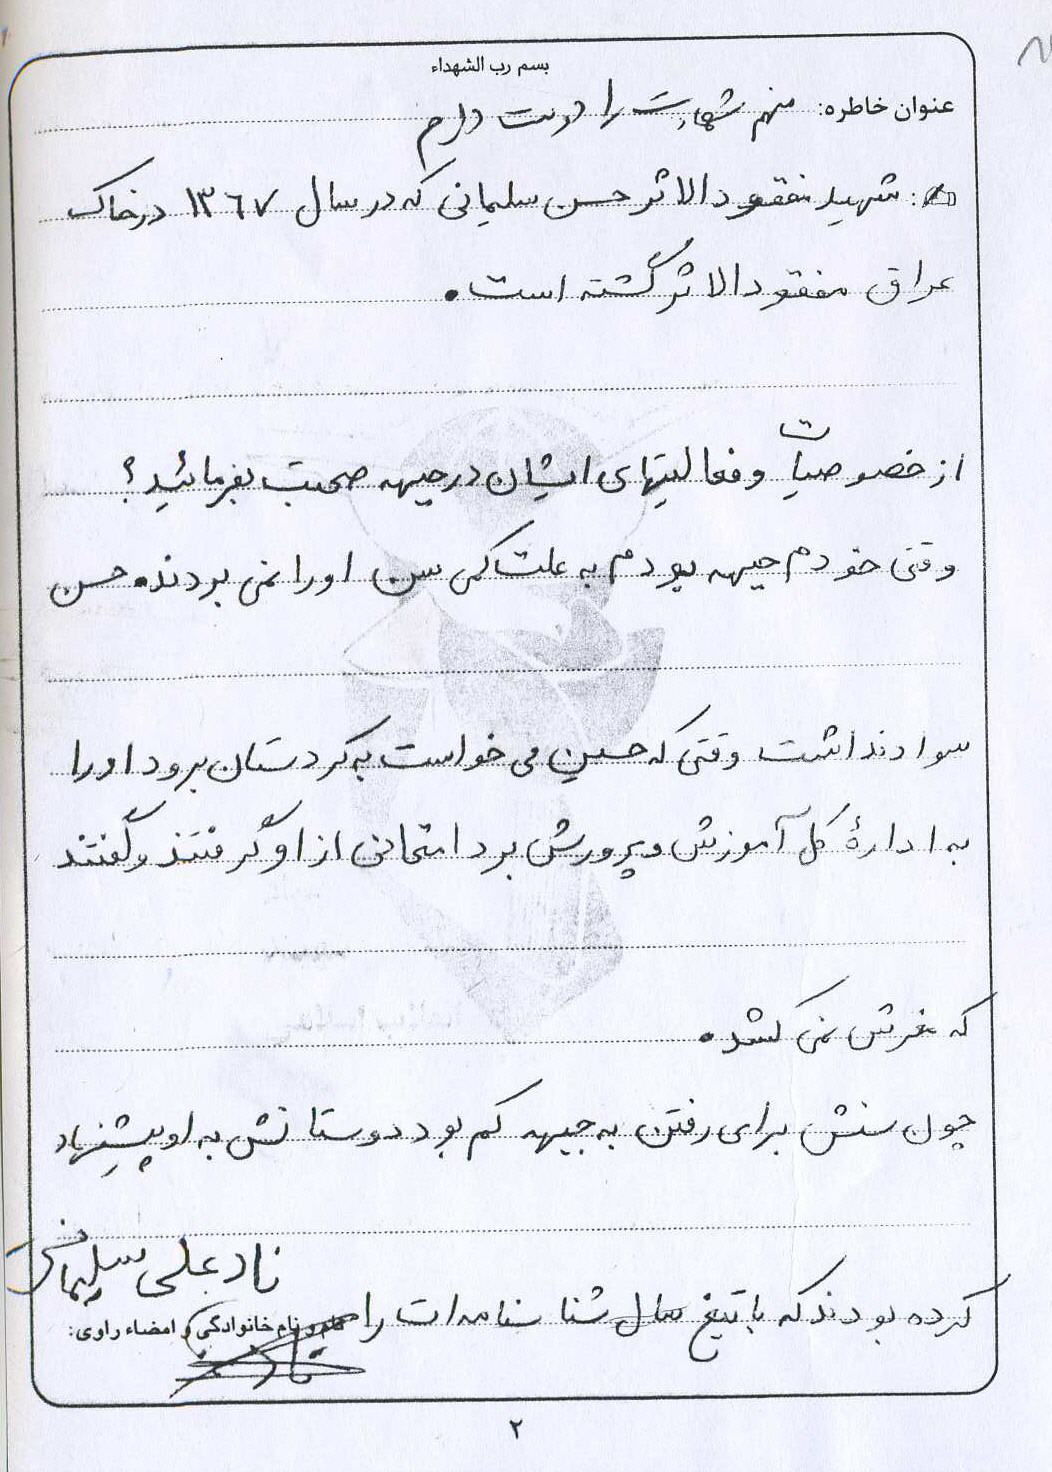 بسم رب الشهداء
عنوان خاطره: منهم شهادت را دوست دارم
: شهید مفقودالاثر حسن سلیمانی که در سال ۱۳۶۷ در خاک
عراق مفقودالاثر گشته است.
از خصوصیات و فعالیتهای ایشان در جبهه صحبت بفرمائید؟
وقتی خودم جبهه بودم به علت کمی سن او را نمی بردند. حسن
سواد نداشت وقتی که حسین می خواست به کردستان برود او را
به ادارۀ کل آموزش و پرورش برد امتحانی از او گرفتند و گفتند
که مغزش نمی کشد.
چون سنش برای رفتن به جبهه کم بود دوستانش به او پیشنهاد
کرده بودند که با تیغ سال شناسنامه ات را
نام و نام خانوادگی و امضاء راوی:
نادعلی سلیمانی
۲